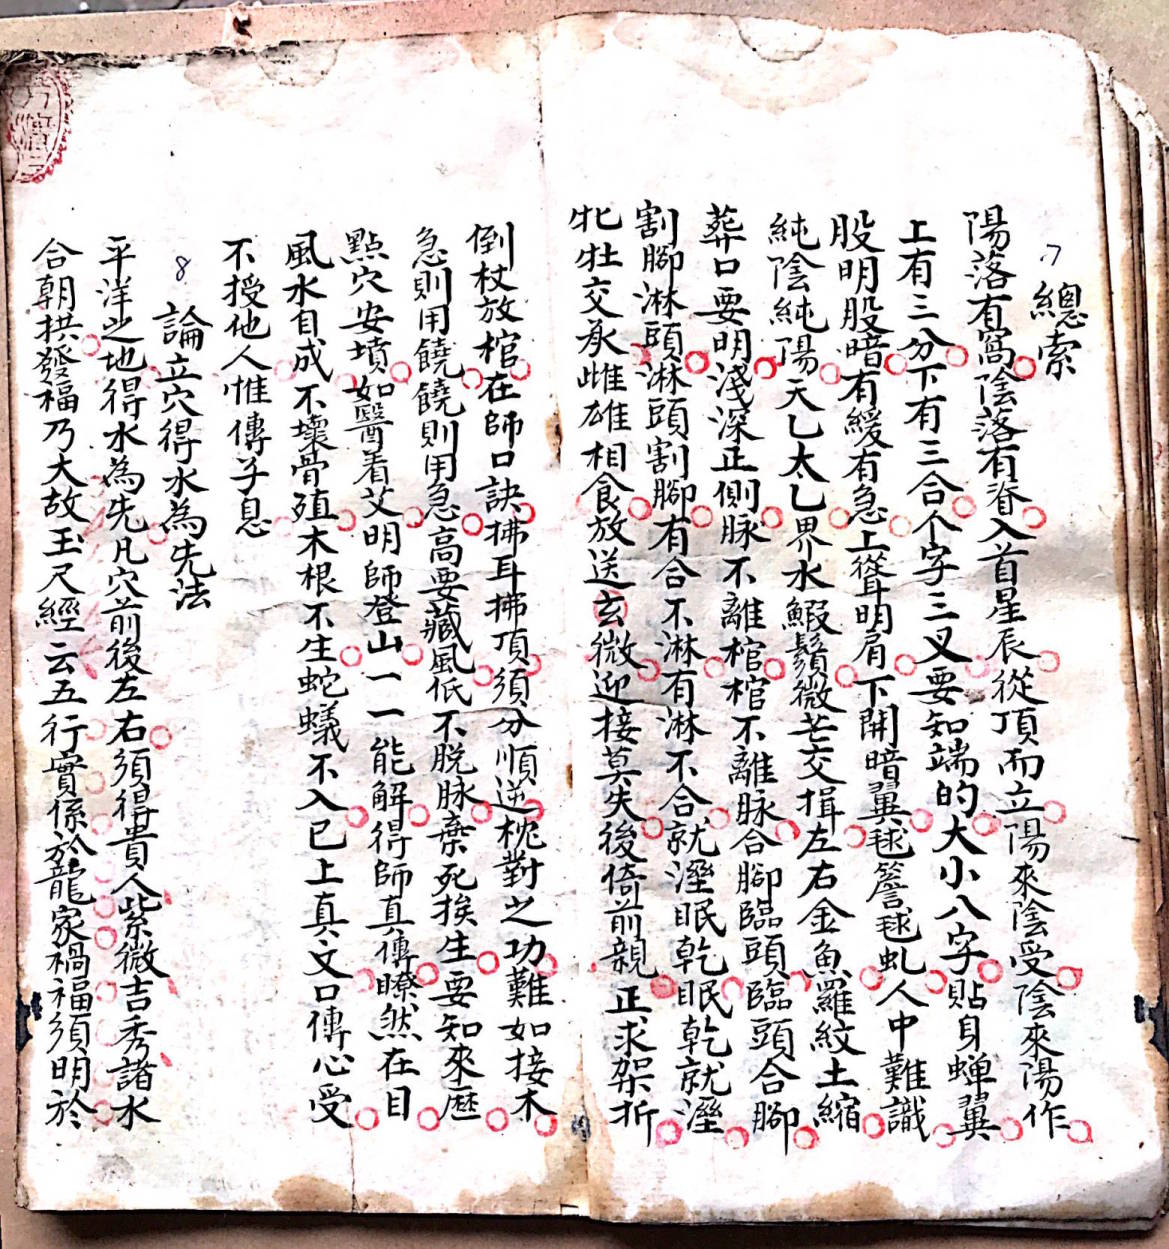 7 總索
陽落有窩陰落有脊入首星辰從頂而立陽來陰受陰來陽作
上有三分下有三合个字三叉要知端的大小八字貼身蟬翼
股明股暗有緩有急上聳明肩下開暗翼毬簷毬虬人中難識
純陰純陽天乙太乙界水鰕鬚微芒交揖左右金魚羅紋土縮
葬口要明淺深正側脉不離棺棺不離脉合腳臨頭臨頭合腳
割腳淋頭淋頭割腳有合不淋有淋不合就溼眠乾眠乾就溼
牝牡交承雌雄相食放送玄微迎接莫失後倚前親正求架折
倒杖放棺在師口訣拂耳拂頂須分順逆枕對之功難如接木
急則用饒饒則用急高要藏風低不脱脉棄死挨生要知來歷
點穴安墳如醫着艾明師登山一一能解得師真傳瞭然在目
風水自成不壞骨殖木根不生蛇蟻不入已上真文口傳心受
不授他人惟傳子息
8 論立穴得水為先法
平洋之地得水為先凡穴前後左右須得貴人紫微吉秀諸水
合朝拱發福乃大故玉尺經云五行實係於龍家禍福須明於